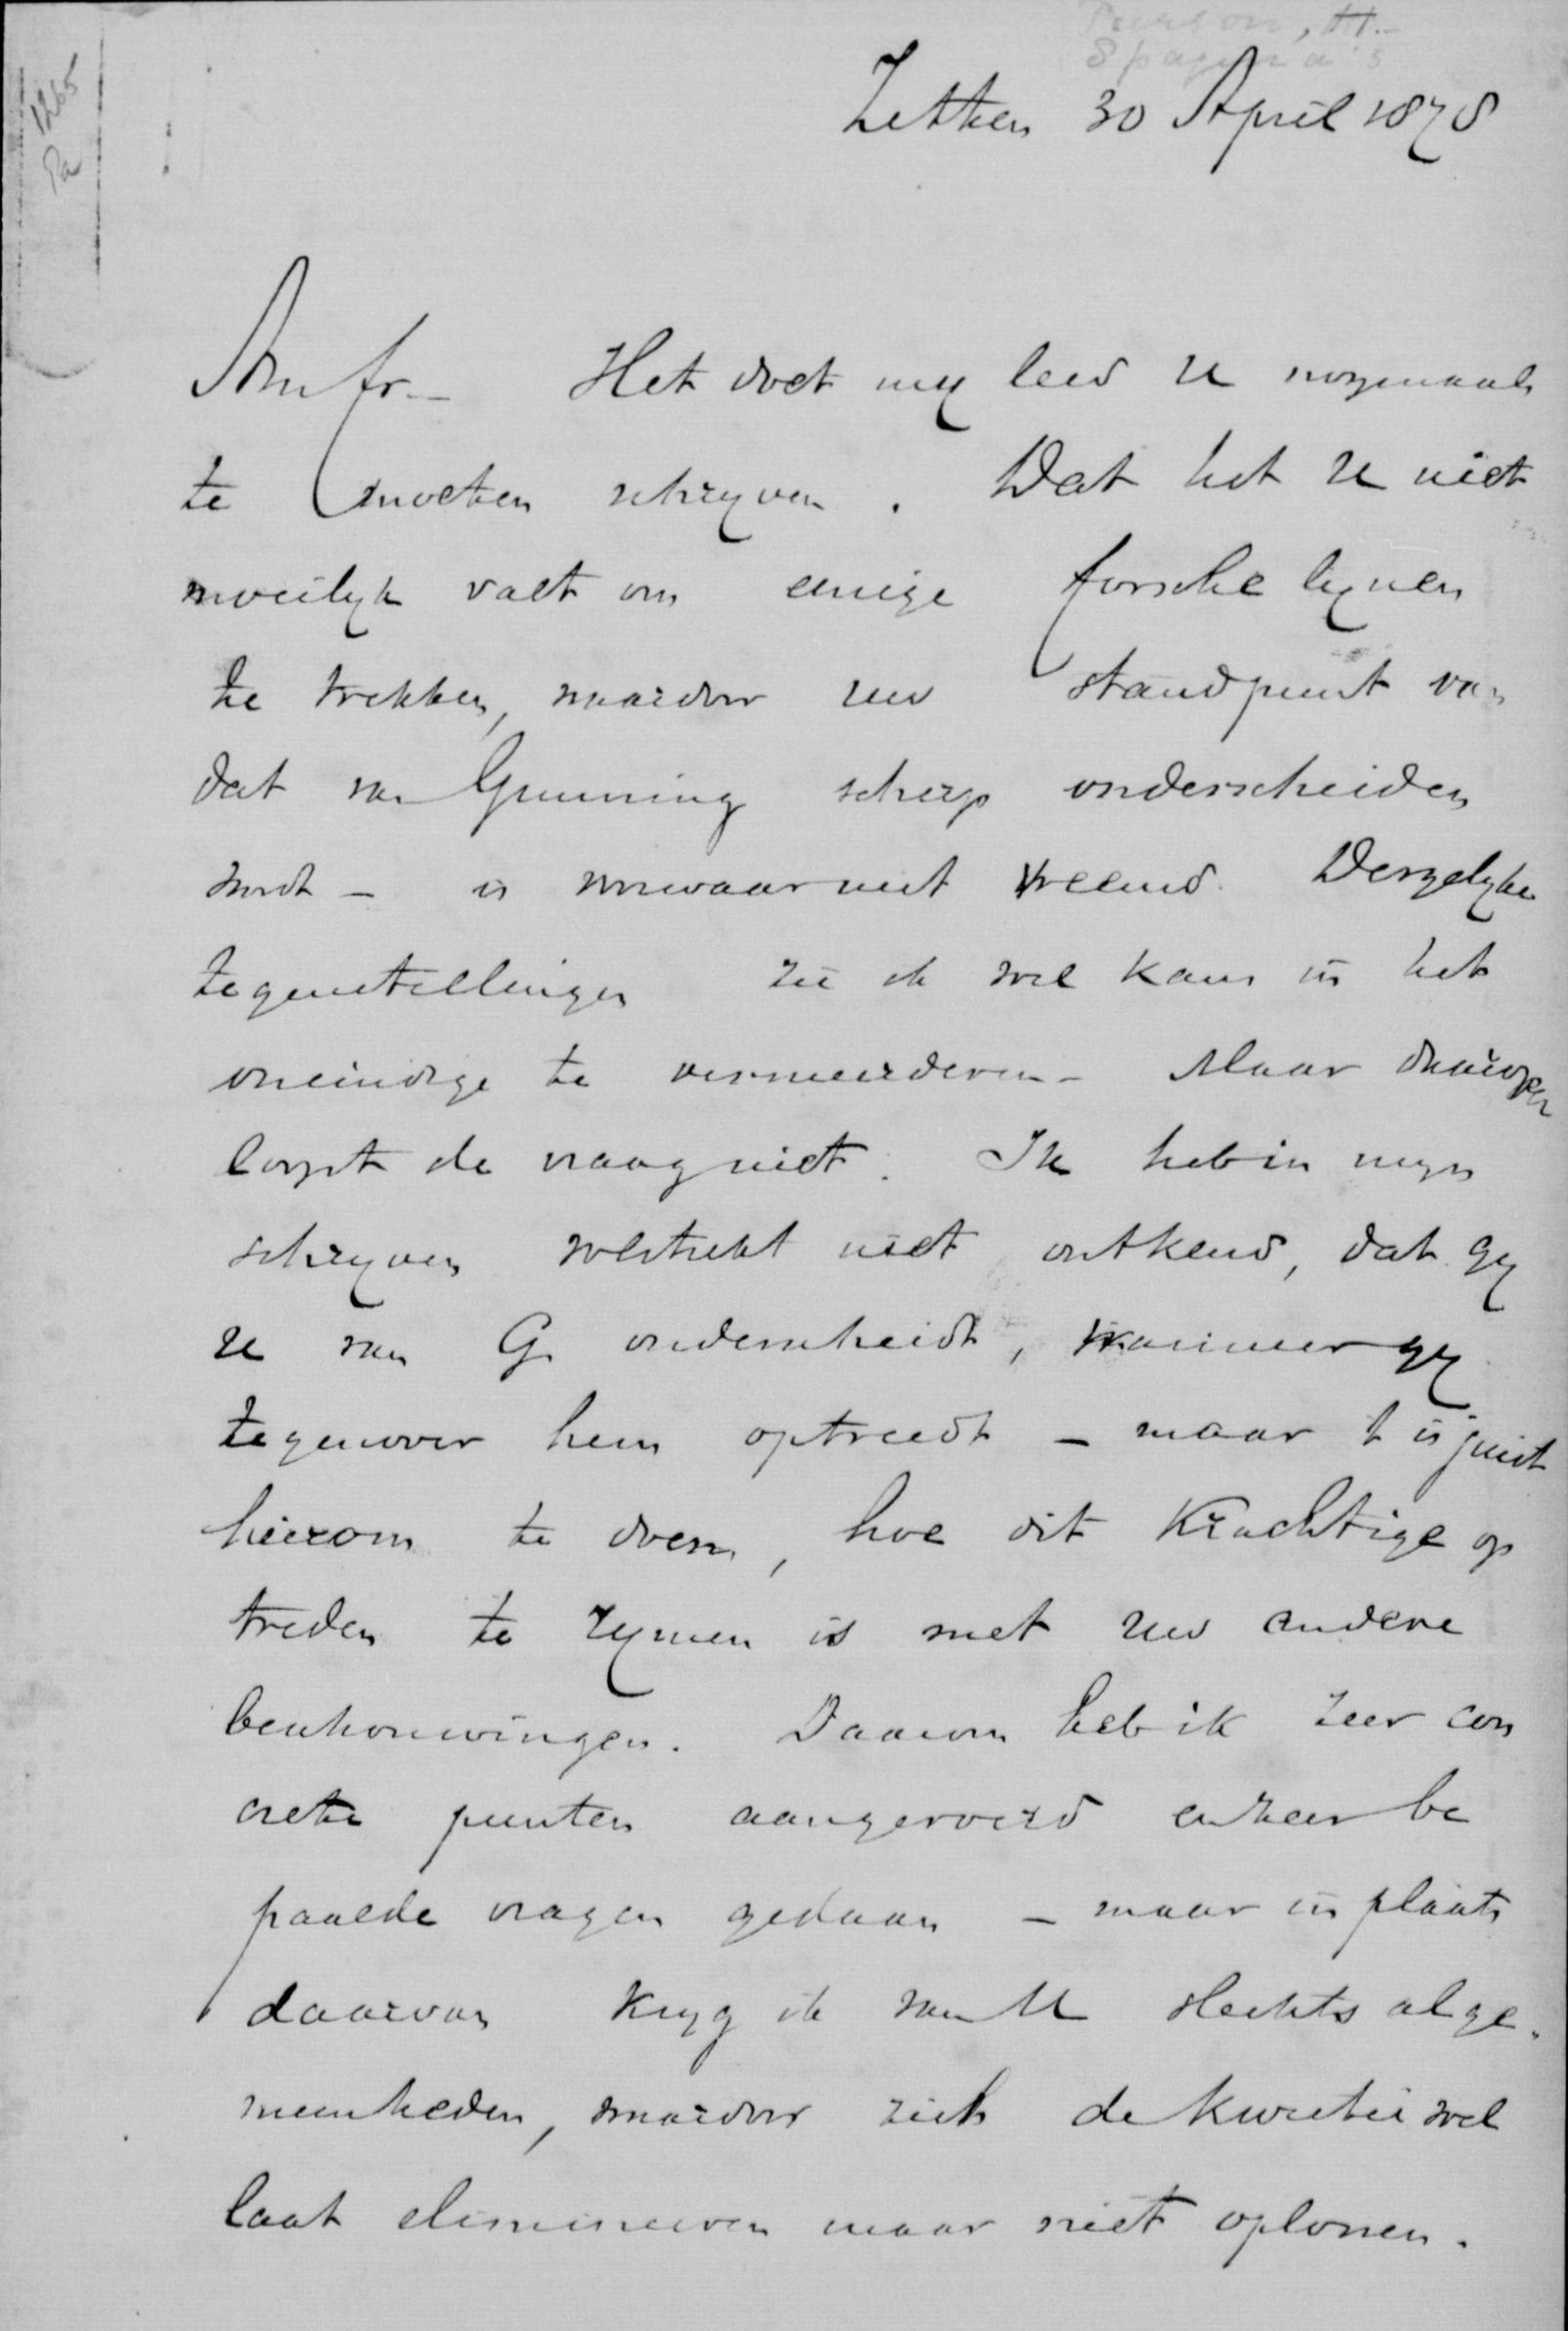 Pierson, H.
8 pagina's
1265
Pa
Zetten 30 April 1878
Am fr. - Het doet my leed U nogmaals
te moeten schryven. Dat het U niet
moeilyk valt om eenige forsche lynen
te trekken, waardoor uw standpunt van
dat van Gunning scherp onderscheiden
wordt - is voorwaar niet vreemd. Dergelyke
tegenstellingen zie ik wel kans in het
oneindige te vermeerderen - Maar daarover
loopt de vraag niet. Ik heb in myn
schryven volstrekt niet ontkend, dat gy
U van G. onderscheidt, wanneer gy
tegenover hem optreedt - maar t is juist
hierom te doen, hoe dit krachtige op
treden te rymen is met uw andere
beschouwingen. Daarom heb ik zeer con
crete punten aangeroerd en zeer be
paalde vragen gedaan - maar in plaats
daarvan kryg ik van U slechts alge-
meenheden, waardoor zich de kwestie wel
laat elimineeren maar niet oplossen.